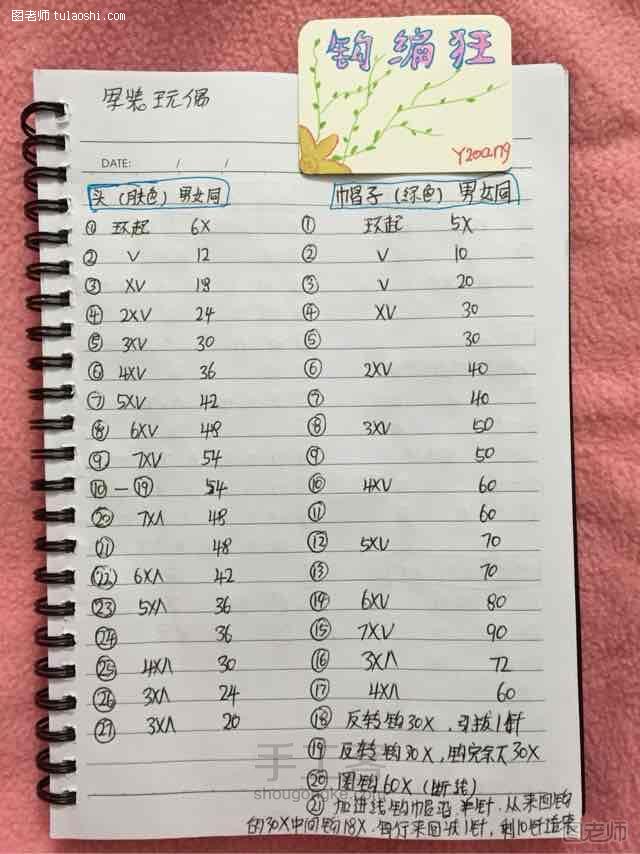 图老师 tulaoshi.com
钩编狂
Y200179
军装玩偶
DATE: / /
头（肤色）男女同
① 环起 6X
② V 12
③ XV 18
④ 2XV 24
⑤ 3XV 30
⑥ 4XV 36
⑦ 5XV 42
⑧ 6XV 48
⑨ 7XV 54
⑩—⑲ 54
⑳ 7XΛ 48
㉑ 48
㉒ 6XΛ 42
㉓ 5XΛ 36
㉔ 36
㉕ 4XΛ 30
㉖ 3XΛ 24
㉗ 3XΛ 20
帽子（绿色）男女同
① 环起 5X
② V 10
③ V 20
④ XV 30
⑤ 30
⑥ 2XV 40
⑦ 40
⑧ 3XV 50
⑨ 50
⑩ 4XV 60
⑪ 60
⑫ 5XV 70
⑬ 70
⑭ 6XV 80
⑮ 7XV 90
⑯ 3XΛ 72
⑰ 4XΛ 60
⑱ 反转钩30X，引拔1针
⑲ 反转钩30X，钩完余下30X
⑳ 圈钩60X（断线）
㉑ 加进线钩帽沿 半针，从来回钩
的30X中间钩18X，每行来回减1针，剩10针结束
手工客
shougongke.com
图老师